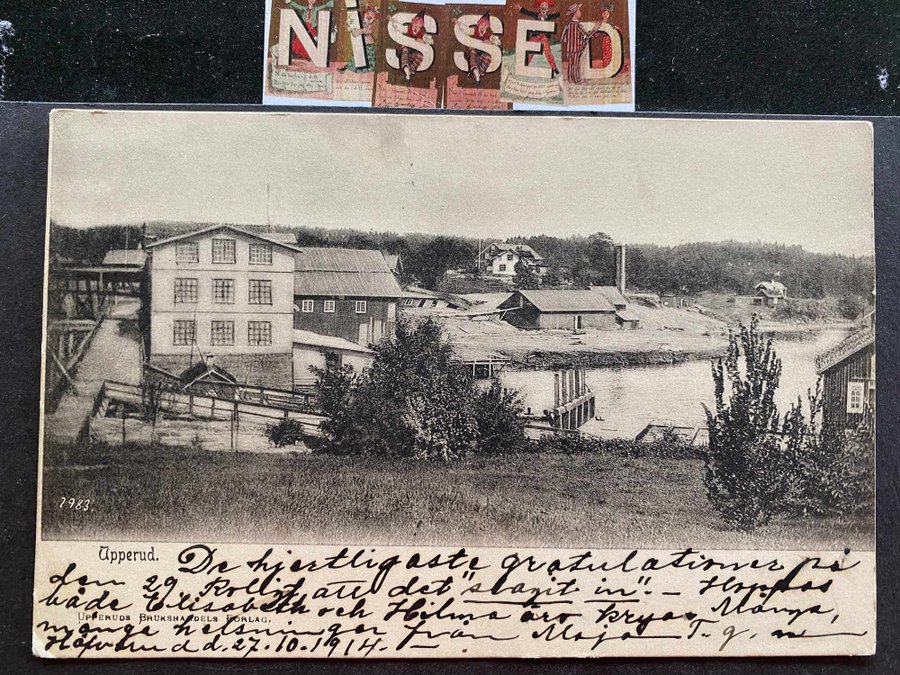 NISSED
7983.
Upperud.
De hjertligaste gratulationer på
den 29 det "slagit in". – Hoppas
både Elisabeth och Hilma äro krya. Många,
UPPERUDS BRUKSHANDELS FÖRLAG.
många helsningar från Maja T. g. m
Håfverud d. 27.10.1914.